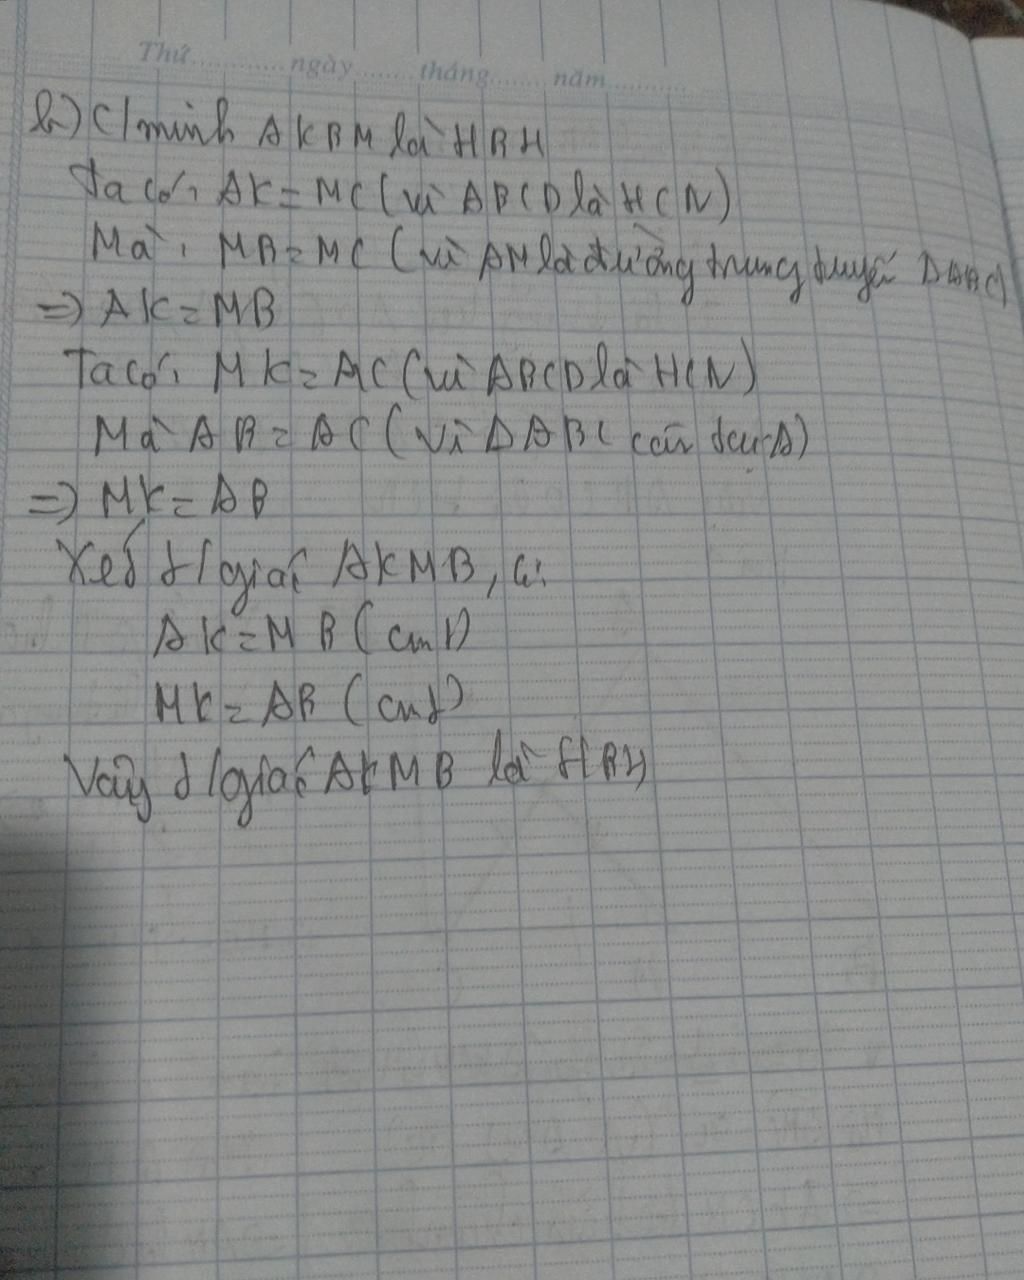 Thứ.............ngày........tháng.......năm...........
b) C/minh AKBM là HBH
Ta có: AK = MC (vì ABCD là HCN)
Mà: MB = MC (vì AM là đường trung tuyến ΔABC)
=> AK = MB
Ta có: MK = AC (vì ABCD là HCN)
Mà AB = AC (vì ΔABC cân tại A)
=> MK = AB
Xét t/giác AKMB, có:
AK = MB (cmt)
MK = AB (cmt)
Vậy t/giác AKMB là HBH